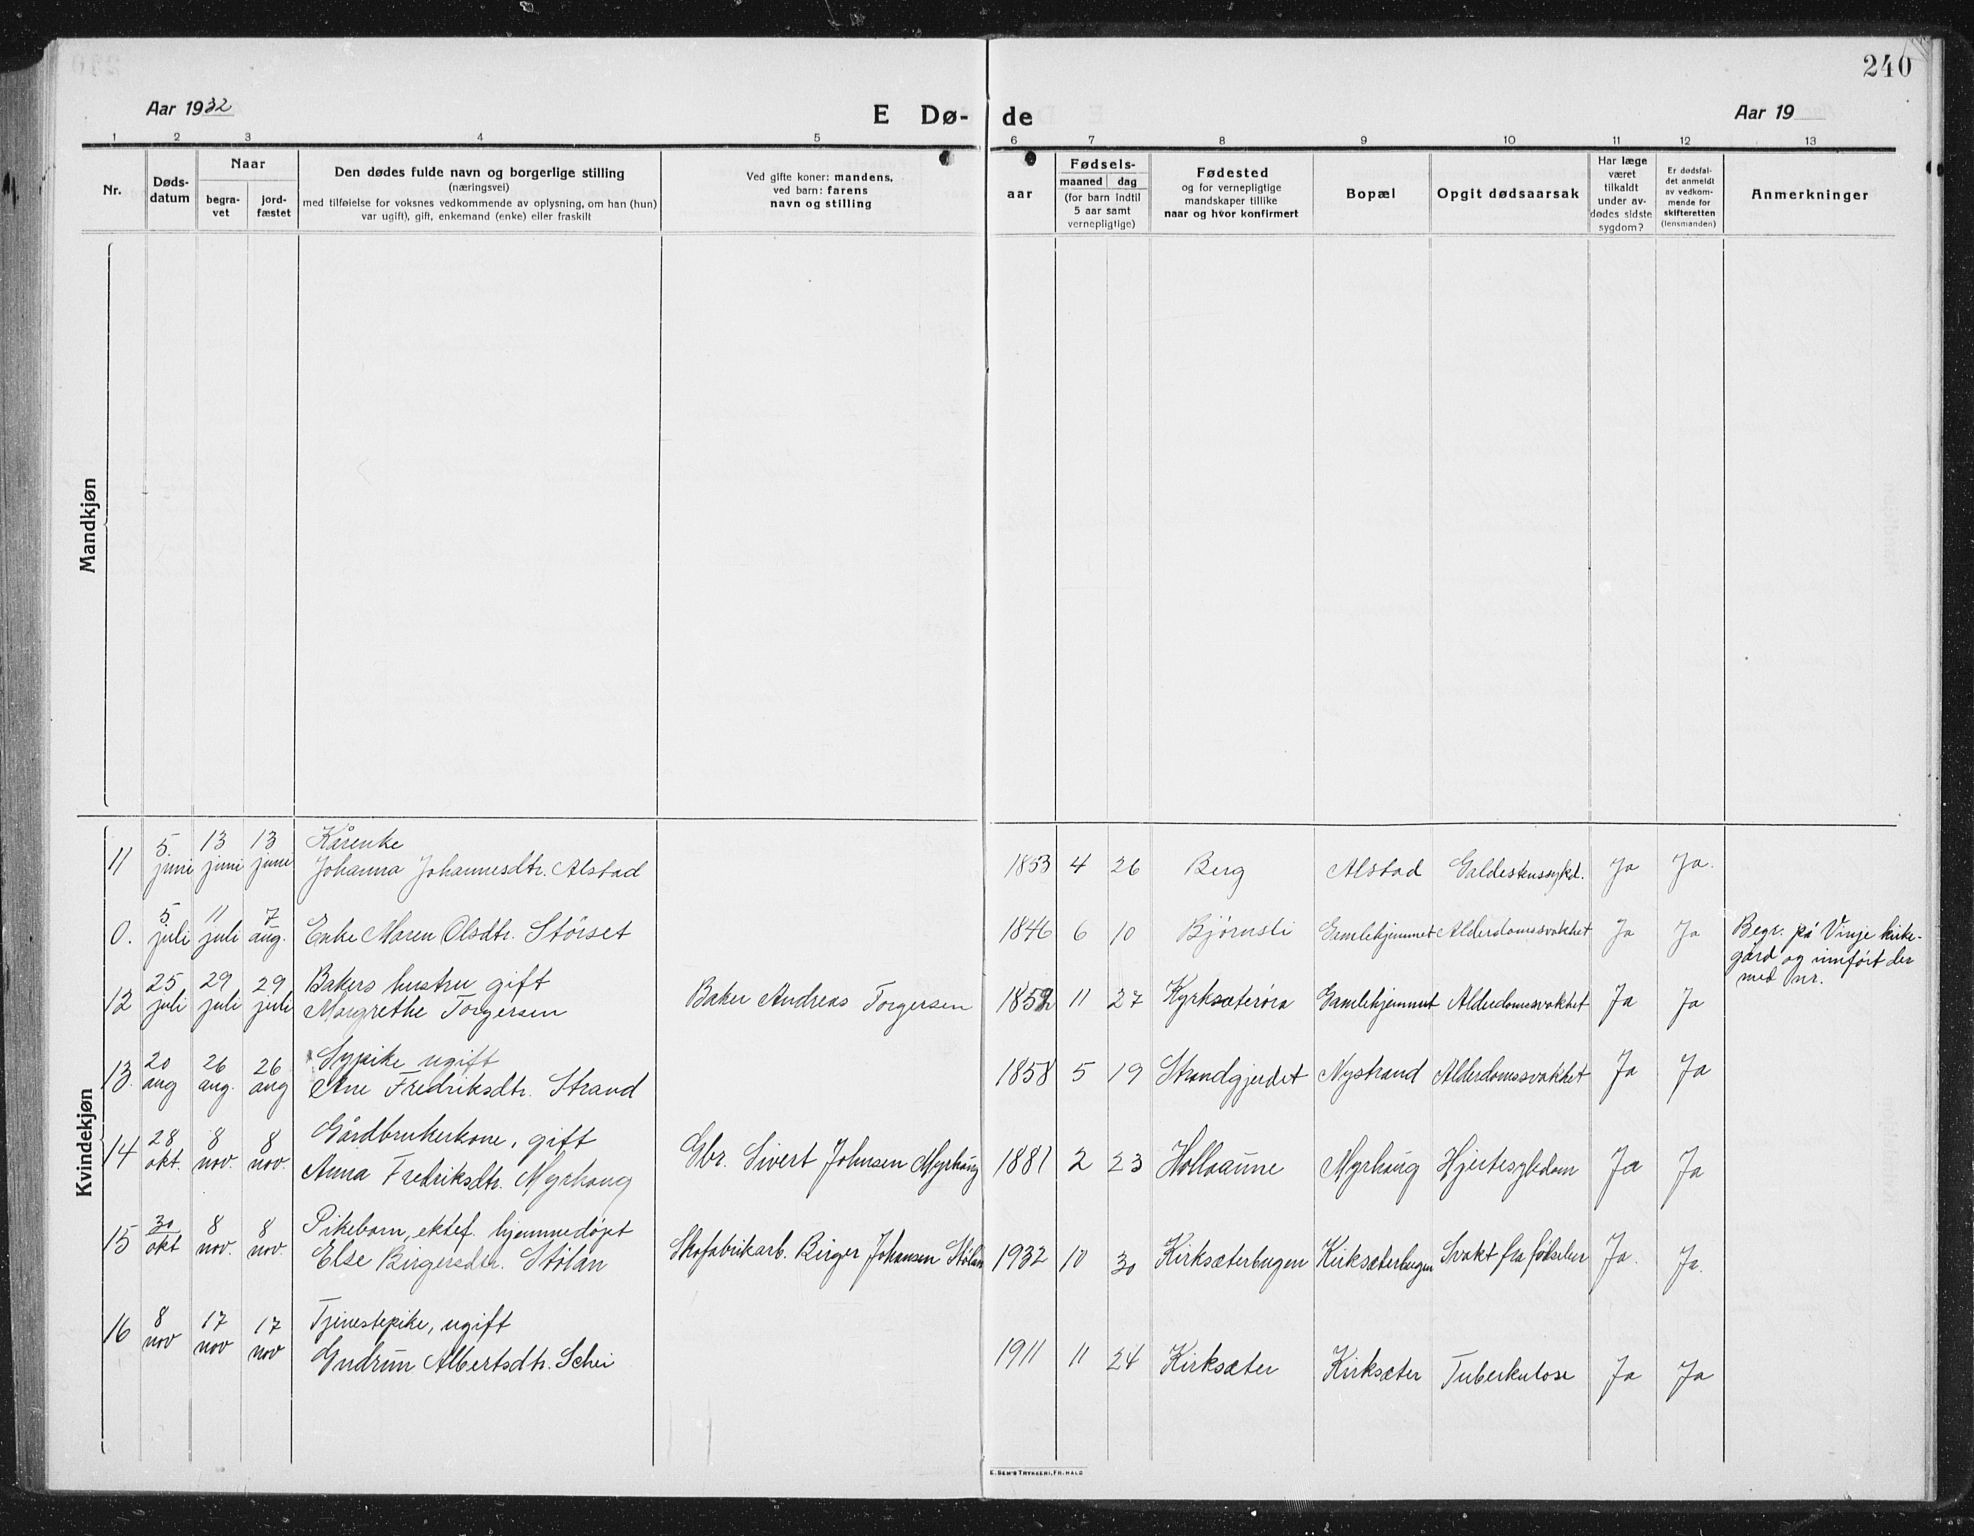 240
Aar 1932
E Dø-
de
Aar 19
1 2 3 4 5 6 7 8 9 10 11 12 13
Nr.
Døds-
datum
Naar
begra-
vet
jord-
fæstet
Den dødes fulde navn og borgerlige stilling
(næringsvei)
med tilføielse for voksnes vedkommende av oplysning, om han (hun)
var ugift), gift, enkemand (enke) eller fraskilt
Ved gifte koner: mandens,
ved barn: farens
navn og stilling
aar
Fødsels-
maaned dag
(for barn indtil
5 aar samt
vernepligtige)
Fødested
og for vernepligtige
mandskaper tillike
naar og hvor konfirmert
Bopæl
Opgit dødsaarsak
Har læge
været
tilkaldt
under av-
dødes sidste
sygdom?
Er dødsfal-
det anmeldt
av vedkom-
mende for
skifteretten
(lensmanden)
Anmerkninger
Mandkjøn
Kvindekjøn
11 5. juni 13 juni 13 juni Kårenke
Johanna Johannesdtr. Alstad 1853 4 26 Berg Alstad Ja Ja.
0. 5 juli 11 juli 7 aug. Enke Maren Olsdtr. Størset 1846 6 10 Bjørnsli Gamlehjemmet Alderdomssvakhet Ja Ja Begr. på Vinje kirke-
gård og innført der
med nr.
12 25 juli 29 juli 29 juli Bakers hustru gift
Margrethe Torgersen Baker Andreas Torgersen 1852 11 27 Kyrksæterøra Gamlehjemmet Alderdomssvakhet Ja Ja
13. 20 aug 26 aug. 26 aug Sypike ugift
Ane Fredriksdtr. Strand 1858 5 19 Strandgjerdet Nystrand Alderdomssvakhet Ja Ja
14 28 okt. 8 nov. 8 nov. Gårdbrukerkone, gift
Anna Fredriksdtr. Myrhaug Gbr. Sivert Johnsen Myrhaug 1881 2 23 Hollaaune Myrhaug Hjertesykdom Ja Ja
15 30 okt 8 nov. 8 nov. Pikebarn, ektef. hjemmedøpt
Else Birgersdtr. Stølan Skofabrikarb. Birger Johansen Stølan 1932 10 30 Kirksæterbugen Kirksæterbugen Svakt fra fødselen Ja. Ja.
16 8 nov 17 nov 17 nov Tjenestepike, ugift
Gudrun Albertsdtr. Schei 1911 11 24 Kirksæter Kirksæter Tuberkulose Ja Ja
E. SEM'S TRYKKERI, FR.HALD